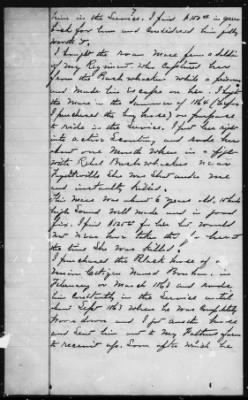 7
him in the Service. I paid $150.00 in green
back for him and considered him fully
worth it.
I bought the roan Mare from a soldier
of my Regiment who Captured her
from the Bushwhackers while a prisoner
and made his escape on her. I bought
the Mare in the Summer of 1864 (before
I purchased the bay horse) on purpose
to ride in the Service. I put her right
into active Scouting and rode her
about one Month When in a fight
with Rebel Bushwhackers near
Fayetteville She was Shot under me
and instantly killed.
This mare was about 6 years old, 15 hands
high Sound well made and in good
fix. I paid $125.00 for her but would
not have have taken that for her at
the time She was killed.
I purchased the Black horse of a
Union Citizen Named in
February or March 1863 and rode
him Constantly in the Service until
about Sept 1863 When he was Completely
worn down and I got another horse
and Sent him out to my Fathers farm
to recruit up. Soon after which he